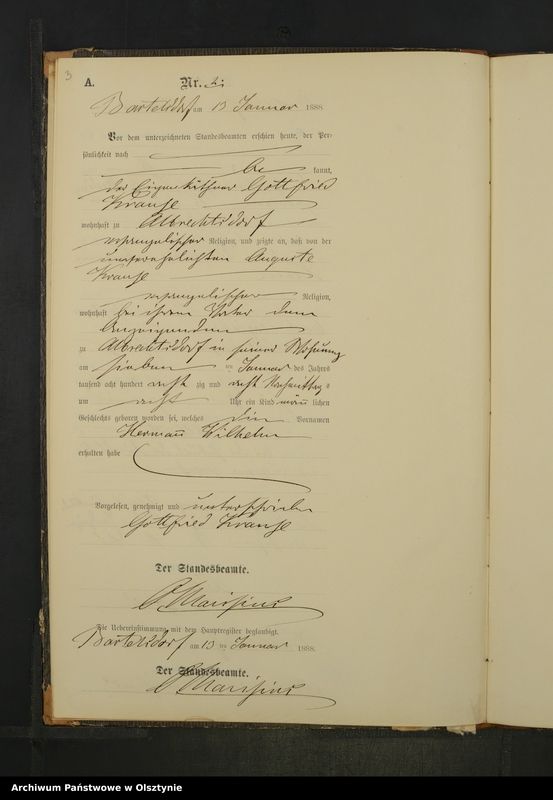 3
A.
Nr.
Bartelsdorf am 13 Januar 1888.
Vor dem unterzeichneten Standesbeamten erschien heute, der Per-
sönlichkeit nach
be kannt,
der Eigenkäthner Gottfried
Krause
wohnhaft zu Albrechtsdorf
evangelischer Religion, und zeigte an, daß von der
unverehelichten Auguste
Krause
evangelischer Religion,
wohnhaft bei ihrem Vater dem
Anzeigenden
zu Albrechtsdorf in seiner Wohnung
am sieben ten Januar des Jahres
tausend acht hundert acht zig und acht Nachmittag s
um acht Uhr ein Kind männ lichen
Geschlechts geboren worden sei, welches die Vornamen
Hermann Wilhelm
erhalten habe
Vorgelesen, genehmigt und unterschrieben
Gottfried Krause
Der Standesbeamte.
Die Uebereinstimmung mit dem Hauptregister beglaubigt.
Bartelsdorf am 13 ten Januar 1888.
Der Standesbeamte.
Archiwum Państwowe w Olsztynie